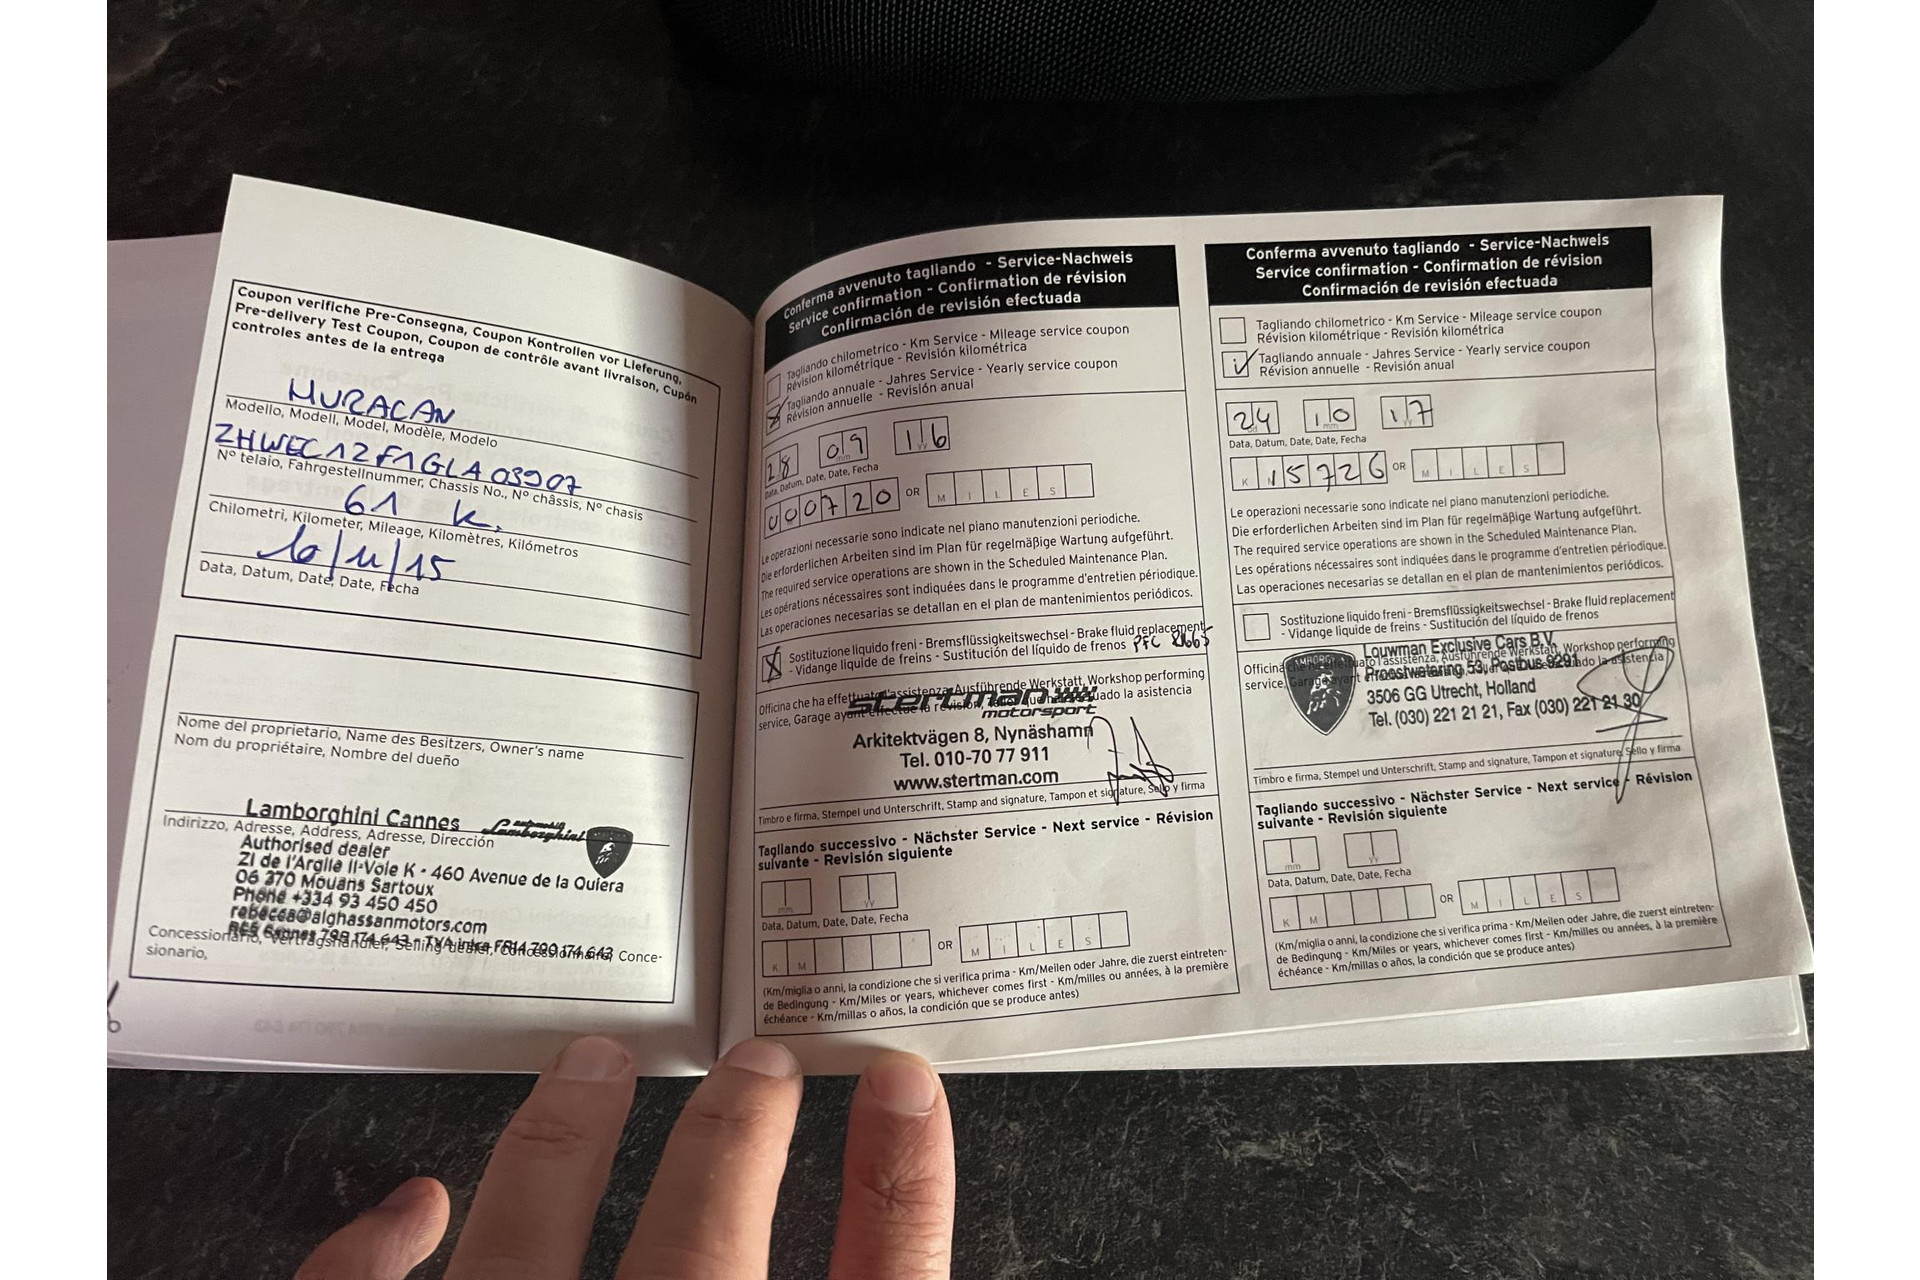 Coupon verifiche Pre-Consegna, Coupon Kontrollen vor Lieferung,
Pre-delivery Test Coupon, Coupon de contrôle avant livraison, Cupón
controles antes de la entrega
HURACAN
Modello, Modell, Model, Modèle, Modelo
ZHWEC12F1GLA03907
N° telaio, Fahrgestellnummer, Chassis No., N° châssis, N° chasis
61 K.
Chilometri, Kilometer, Mileage, Kilomètres, Kilómetros
16/11/15
Data, Datum, Date, Date, Fecha
Nome del proprietario, Name des Besitzers, Owner's name
Nom du propriétaire, Nombre del dueño
Lamborghini Cannes
automobili Lamborghini
Indirizzo, Adresse, Address, Adresse, Dirección
Authorised dealer
ZI de l'Argile II-Voie K - 460 Avenue de la Quiera
06 370 Mouans Sartoux
Phone +334 93 450 450
rebecca@alghassanmotors.com
RCS Cannes 799 174 643 - TVA intra FR14 790 174 643
Concessionario, Vertragshändler, Selling dealer, Concessionnaire, Conce-
sionario,
Conferma avvenuto tagliando - Service-Nachweis
Service confirmation - Confirmation de révision
Confirmación de revisión efectuada
Tagliando chilometrico - Km Service - Mileage service coupon
Révision kilométrique - Revisión kilométrica
Tagliando annuale - Jahres Service - Yearly service coupon
Révision annuelle - Revisión anual
28 09 16
Data, Datum, Date, Date, Fecha
000720 OR MILES
Le operazioni necessarie sono indicate nel piano manutenzioni periodiche.
Die erforderlichen Arbeiten sind im Plan für regelmäßige Wartung aufgeführt.
The required service operations are shown in the Scheduled Maintenance Plan.
Les opérations nécessaires sont indiquées dans le programme d'entretien périodique.
Las operaciones necesarias se detallan en el plan de mantenimientos periódicos.
Sostituzione liquido freni - Bremsflüssigkeitswechsel - Brake fluid replacement
- Vidange liquide de freins - Sustitución del líquido de frenos PFC
Officina che ha effettuato l'assistenza, Ausführende Werkstatt, Workshop performing
service, Garage ayant effectué la révision, que ha efectuado la asistencia
stertman
motorsport
Arkitektvägen 8, Nynäshamn
Tel. 010-70 77 911
www.stertman.com
Timbro e firma, Stempel und Unterschrift, Stamp and signature, Tampon et signature, Sello y firma
Tagliando successivo - Nächster Service - Next service - Révision
suivante - Revisión siguiente
mm YY
Data, Datum, Date, Date, Fecha
KM OR MILES
(Km/miglia o anni, la condizione che si verifica prima - Km/Meilen oder Jahre, die zuerst eintreten-
de Bedingung - Km/Miles or years, whichever comes first - Km/milles ou années, à la première
échéance - Km/millas o años, la condición que se produce antes)
Conferma avvenuto tagliando - Service-Nachweis
Service confirmation - Confirmation de révision
Confirmación de revisión efectuada
Tagliando chilometrico - Km Service - Mileage service coupon
Révision kilométrique - Revisión kilométrica
Tagliando annuale - Jahres Service - Yearly service coupon
Révision annuelle - Revisión anual
24 10 17
Data, Datum, Date, Date, Fecha
K 15726 OR MILES
Le operazioni necessarie sono indicate nel piano manutenzioni periodiche.
Die erforderlichen Arbeiten sind im Plan für regelmäßige Wartung aufgeführt.
The required service operations are shown in the Scheduled Maintenance Plan.
Les opérations nécessaires sont indiquées dans le programme d'entretien périodique.
Las operaciones necesarias se detallan en el plan de mantenimientos periódicos.
Sostituzione liquido freni - Bremsflüssigkeitswechsel - Brake fluid replacement
- Vidange liquide de freins - Sustitución del líquido de frenos
Louwman Exclusive Cars B.V.
Officina che ha effettuato l'assistenza, Ausführende Werkstatt, Workshop performing
Proostwetering 53, Postbus 9291
service, Garage ayant la asistencia
3506 GG Utrecht, Holland
Tel. (030) 221 21 21, Fax (030) 221 21 30
Timbro e firma, Stempel und Unterschrift, Stamp and signature, Tampon et signature, Sello y firma
Tagliando successivo - Nächster Service - Next service - Révision
suivante - Revisión siguiente
mm YY
Data, Datum, Date, Date, Fecha
KM OR MILES
(Km/miglia o anni, la condizione che si verifica prima - Km/Meilen oder Jahre, die zuerst eintreten-
de Bedingung - Km/Miles or years, whichever comes first - Km/milles ou années, à la première
échéance - Km/millas o años, la condición que se produce antes)